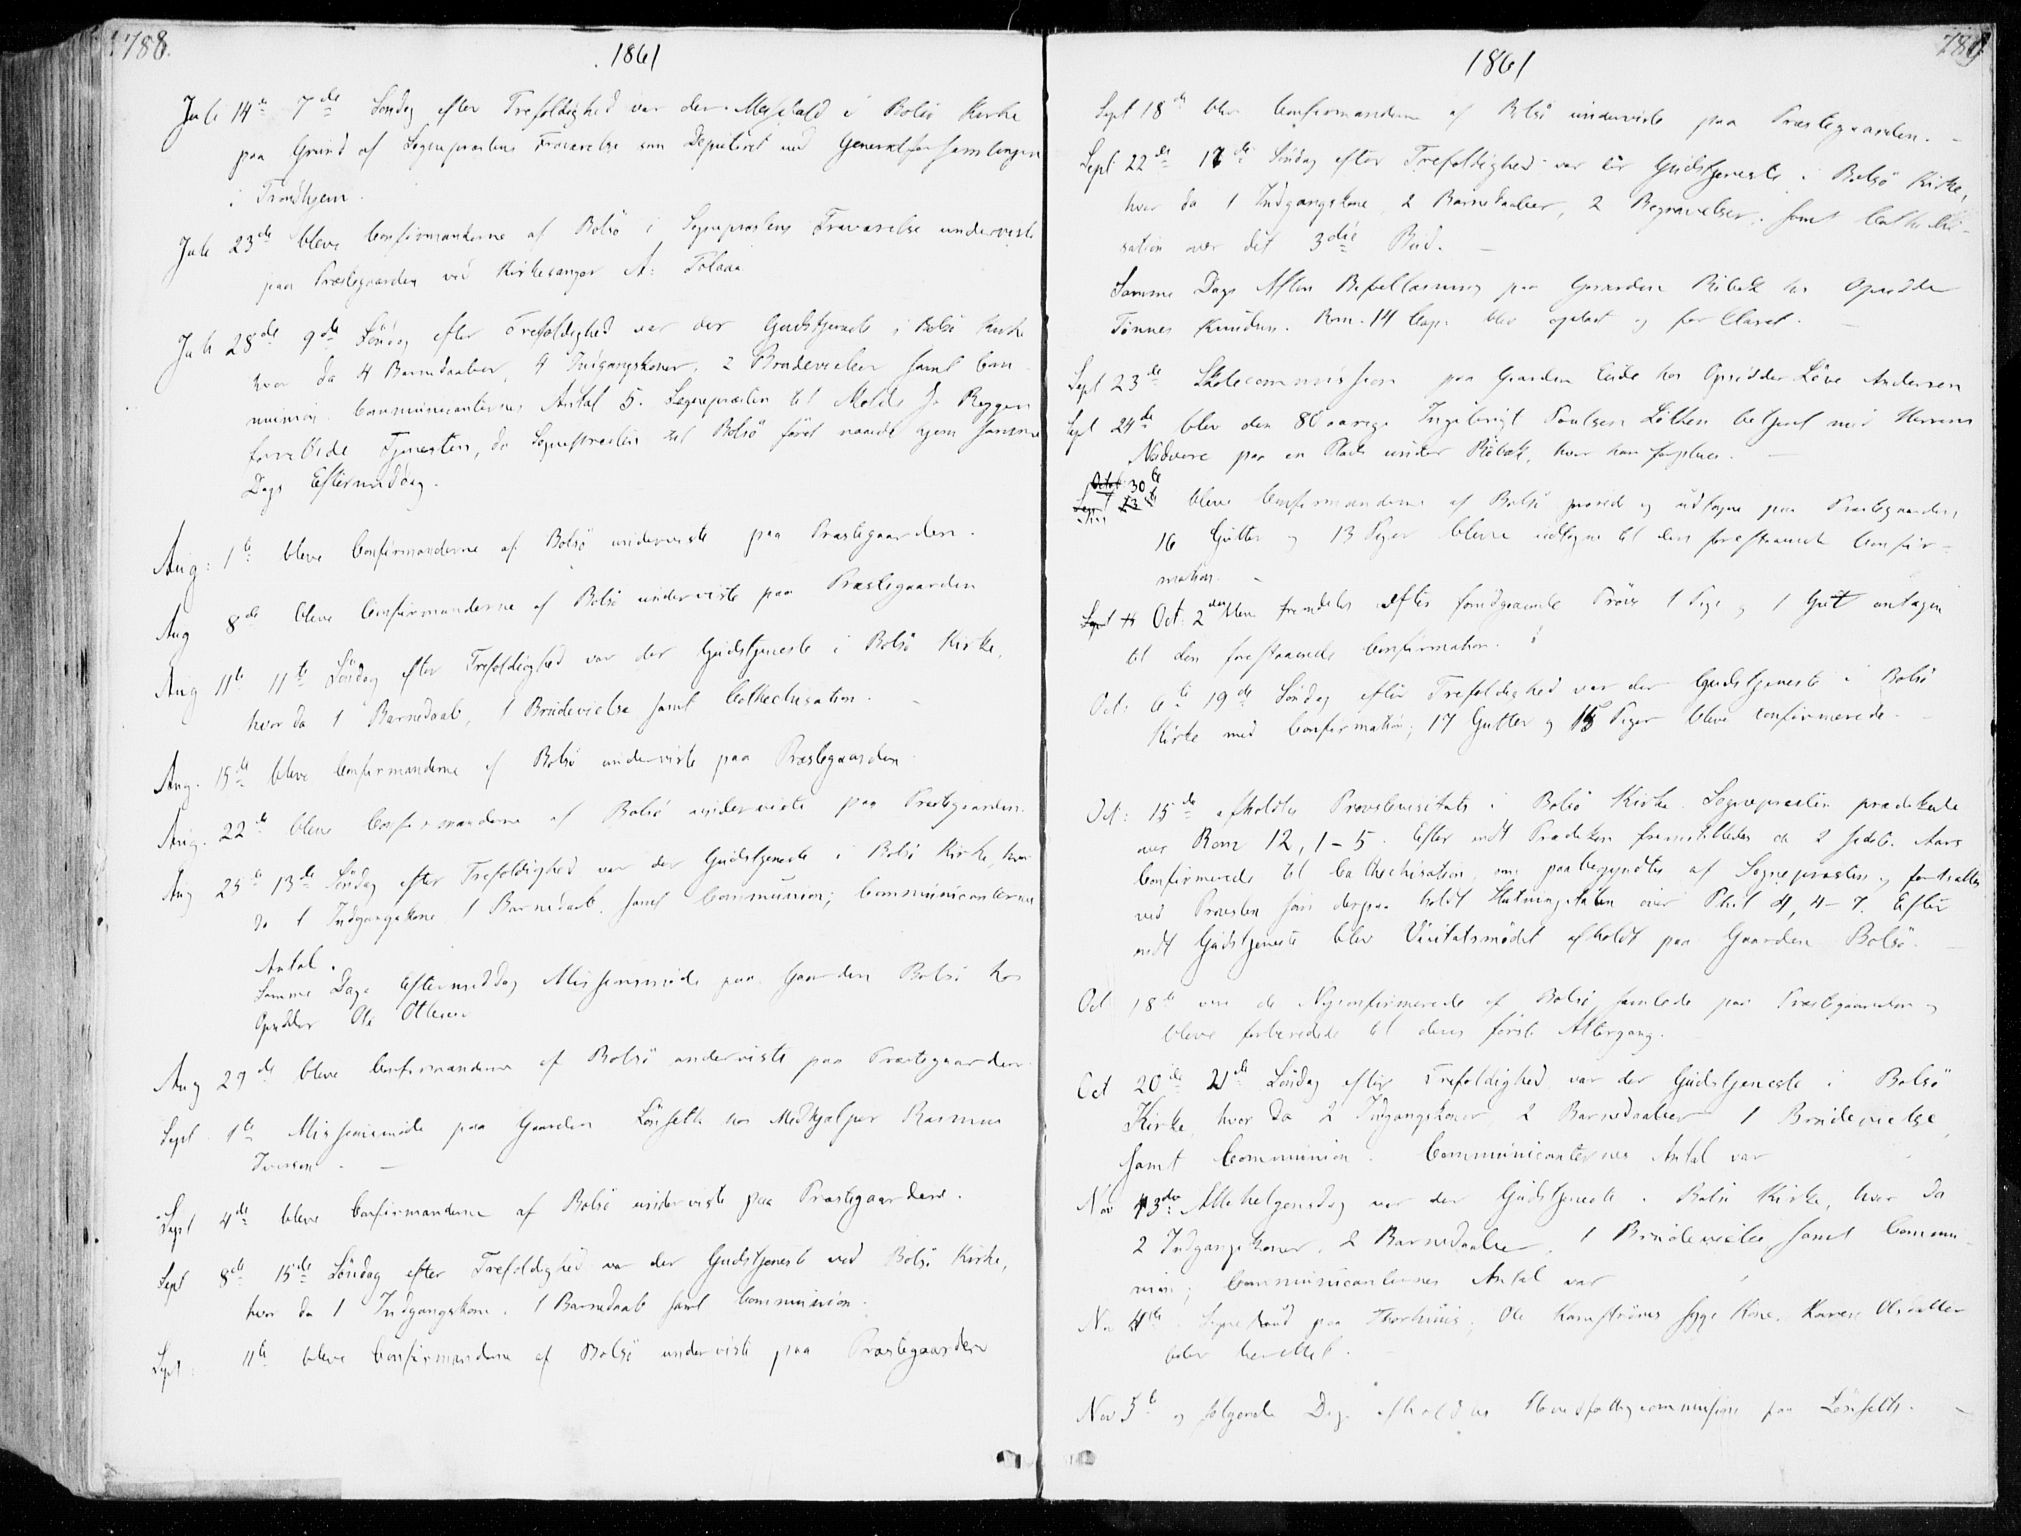 788.
1861
Juli 14de 7de Søndag efter Trefoldighed var der Messefald i Bolsø Kirke
paa Grund af Sognepræstens Fraværelse som Deputeret ved Generalforsamlingen
i Trondhjem.
Juli 23de bleve Confirmanderne af Bolsø i Sognepræstens Fraværelse underviste
paa Præstegaarden ved Kirkesanger A:
Juli 28de 9de Søndag efter Trefoldighed var der Gudstjeneste i Bolsø Kirke
hvor da 4 Barnedaaber, 4 Indgangskoner, 2 Brudevielser samt Com-
munion. Communicanternes Antal 5. Sognepræsten til Molde
Tjenesten, da Sognepræsten til Bolsø først naaede hjem samme
Dags Eftermiddag.
Aug: 1te bleve Confirmanderne af Bolsø underviste paa Præstegaarden.
Aug 8de bleve Confirmanderne af Bolsø underviste paa Præstegaarden
Aug 11te 11te Søndag efter Trefoldighed var der Gudstjeneste i Bolsø Kirke,
hvor da 1 Barnedaab, 1 Brudevielse samt Cathechisation.
Aug. 15de bleve Confirmanderne af Bolsø underviste paa Præstegaarden
Aug. 22de bleve Confirmanderne af Bolsø underviste paa Præstegaarden.
Aug 25de 13de Søndag efter Trefoldighed var der Gudstjeneste i Bolsø Kirke, hvor
da 1 Indgangskone, 1 Barnedaab, samt Communion; Communicanternes
Antal.
Samme Dags Eftermiddag Missionsmøde paa Gaarden Bolsø hos
Opsidder Ole
Aug 29de bleve Confirmanderne af Bolsø underviste paa Præstegaarden.
Sept. 1te Missionsmøde paa Gaarden Lønseth hos Medhjelper Rasmus
Iversen. –
Sept 4de bleve Confirmanderne af Bolsø underviste paa Præstegaarden.
Sept 8de 15de Søndag efter Trefoldighed var der Gudstjeneste ved Bolsø Kirke,
hvor da 1 Indgangskone, 1 Barnedaab samt Communion.
Sept: 11te bleve Confirmanderne af Bolsø underviste paa Præstegaarden
789
1861
Sept 18de blev Confirmanderne af Bolsø underviste paa Præstegaarden. –
Sept: 22de 17de Søndag efter Trefoldighed var der Gudstjeneste i Bolsø Kirke,
hvor da 1 Indgangskone, 2 Barnedaaber, 2 Begravelser, samt Cathechi-
sation over det 3die Bud. –
Samme Dags Aften Bibellæsning paa Gaarden Røbek hos Opsidder
Tønnes Knudsen. Rom. 14 Cap. blev oplæst og forklaret. –
Sept 23de Skolecommission paa Gaarden hos Opsidder Andersen
Sept 24de blev den 80 aarige Ingebrigt Poulsen betjent med Herrens
Nadvere paa en Plads under Røbek, hvor han forpleies. –
30te
bleve Confirmanderne af Bolsø prøvede og udtagne paa Præstegaarden,
16 Gutter og 13 Piger bleve udtagne til den forestaaende Confir-
mation. –
Oct. 2den bleve fremdeles efter foregaaende Prøve 1 Pige og 1 Gut antagen
til den forestaaende Confirmation.
Oct: 6te 19de Søndag efter Trefoldighed var der Gudstjeneste i Bolsø
Kirke med Confirmation; 17 Gutter og 15 Piger bleve confirmerede. –
Oct: 15de afholdtes Provstevisitats i Bolsø Kirke. Sognepræsten prædikede
over Rom 12, 1-5. Efter endt Prædiken fremstilledes de 2 sidste Aars
Confirmerede til Cathechisation, som paabegyndtes af Sognepræsten og fortsattes
ved Provsten som derpaa holdt Slutningstalen over Phil 4, 4-7. Efter
endt Gudstjeneste blev Visitatsmødet afholdt paa Gaarden Bolsø. –
Oct 18de vare de Nyconfirmerede af Bolsø samlede paa Præstegaarden og
bleve forberedede til deres første Altergang. –
Oct 20de 21de Søndag efter Trefoldighed var der Gudstjeneste i Bolsø
Kirke, hvor da 2 Indgangskoner, 2 Barnedaaber 1 Brudevielse,
samt Communion. Communicanternes Antal var
Nov 3die Allehelgensdag var der Gudstjeneste i Bolsø Kirke, hvor da
2 Indgangskoner, 2 Barnedaaber, 1 Brudevielse samt Commu-
nion; Communicanternes Antal var
Nov 4de Sognebud paa Thorhuus, Ole syge Kone, Karen Olsdatter
blev berettet. –
Nov 5te og følgende Dag afholdtes Hovedfattigcommission paa Lønseth. –